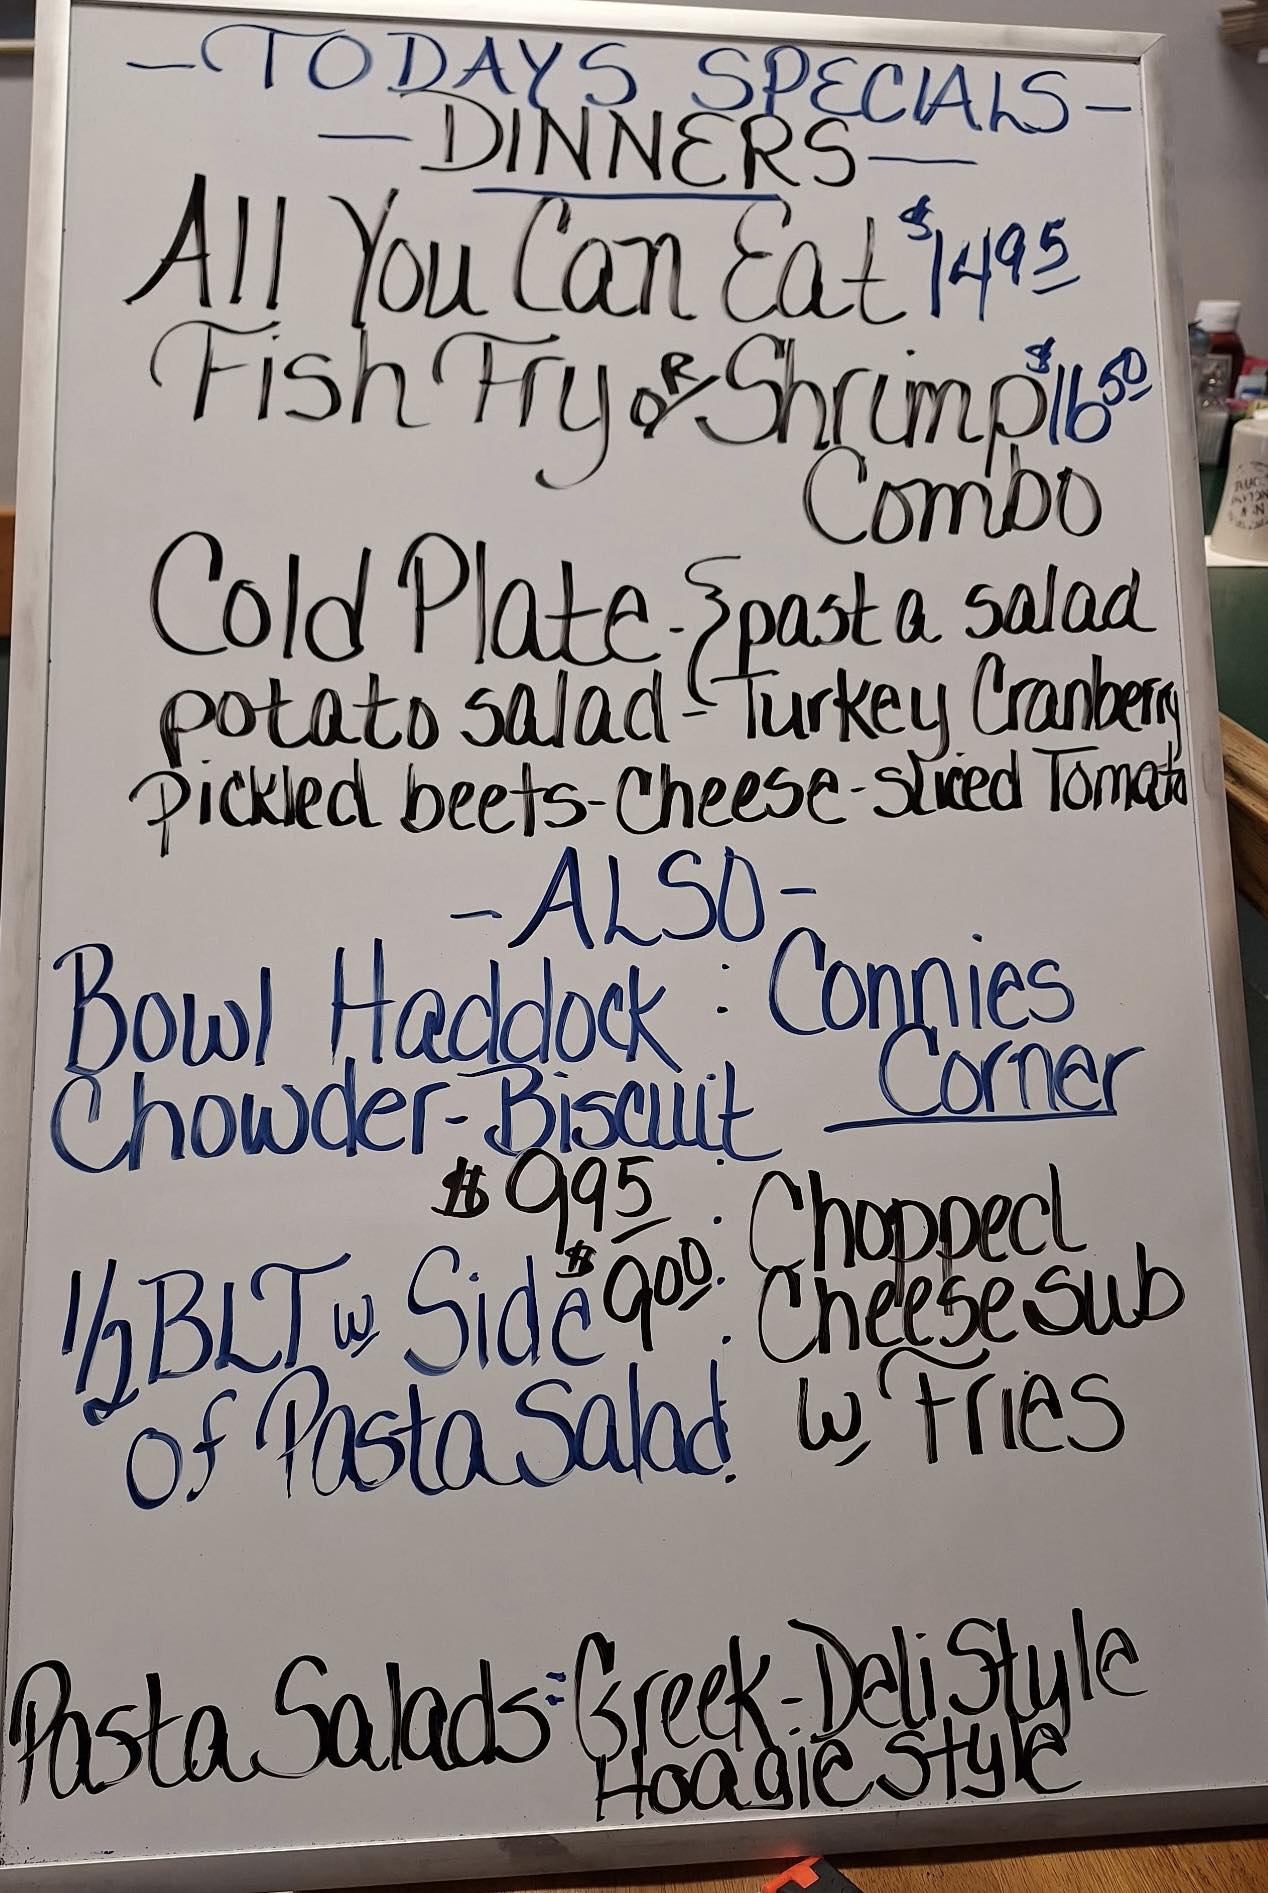 - TODAYS SPECIALS -
- DINNERS -
All You Can Eat $14 95
Fish Fry OR Shrimp $16 50
Combo
Cold Plate - { pasta salad
potato salad - Turkey Cranberry
pickled beets - Cheese - sliced Tomato
- ALSO -
Bowl Haddock
Chowder - Biscuit
$ 9 95
1/2 BLT w Side $ 9 00
of Pasta Salad
Connies
Corner
Chopped
Cheese sub
w Fries
Pasta Salads = Greek - Deli Style
Hoagie style